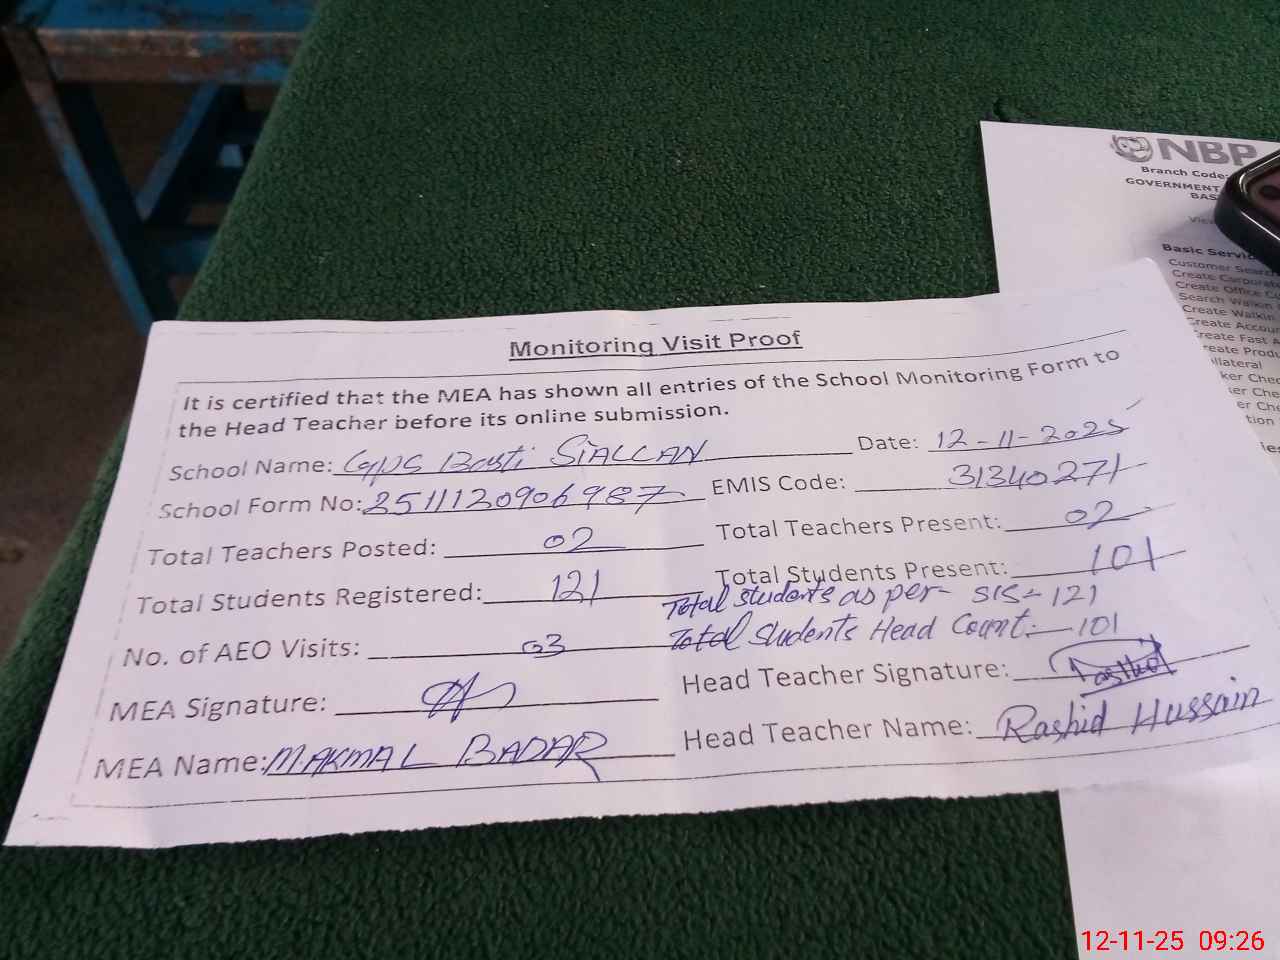 NBP
Branch Code:
GOVERNMENT
BAS
Basic Servic
Customer Search
Create Corporat
Create Office
Search Walkin
Create Walkin
Create Accou
reate Fast A
reate Produ
llateral
ker Chec
er Che
er Ch
tion
Monitoring Visit Proof
It is certified that the MEA has shown all entries of the School Monitoring Form to
the Head Teacher before its online submission.
School Name: GPS Basti SIALLAN Date: 12-11-2025
School Form No: 2511120906987 EMIS Code: 31340271
Total Teachers Posted: 02 Total Teachers Present: 02
Total Students Registered: 121 Total Students Present: 101
Total students as per- SIS- 121
No. of AEO Visits: 03 Total Students Head Count:- 101
MEA Signature: Head Teacher Signature:
MEA Name: M.AKMAL BADAR Head Teacher Name: Rashid Hussain
12-11-25 09:26